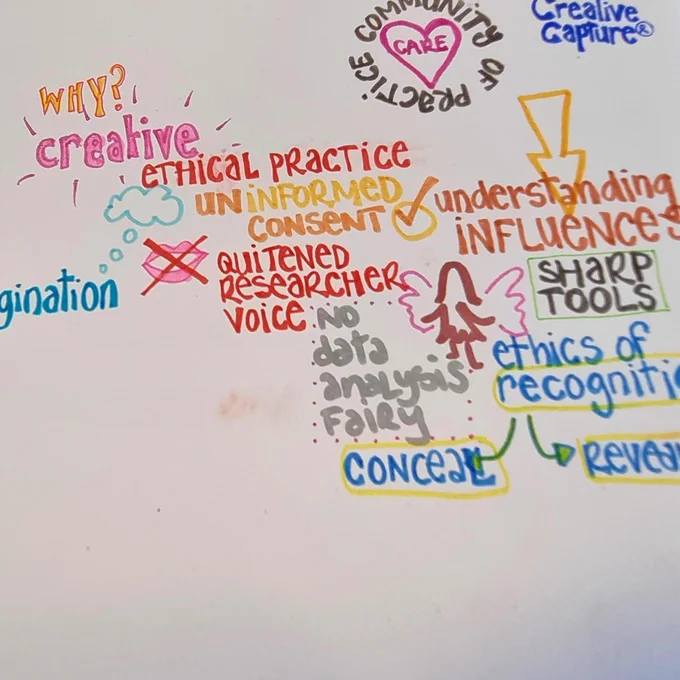 COMMUNITY OF PRACTICE
CARE
Creative
Capture®
WHY?
creative
ETHICAL PRACTICE
UNINFORMED
CONSENT
understanding
INFLUENCES
gination
QUITENED
RESEARCHER
VOICE
SHARP
TOOLS
NO
data
analysis
FAIRY
ethics of
recogniti
CONCEAL
REVEA